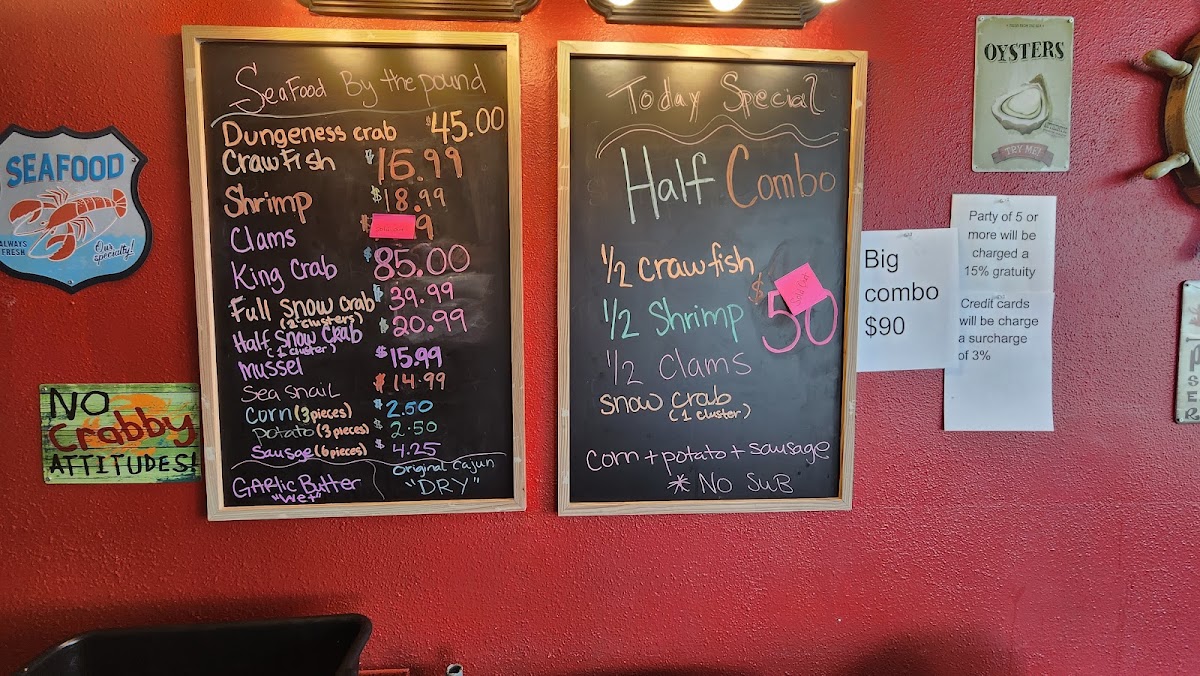 SEAFOOD
ALWAYS
FRESH
Our
specialty!
NO
Crabby
ATTITUDES!
SeaFood By the pound
Dungeness crab $45.00
CrawFish $16.99
Shrimp $18.99
Clams $ 9
King Crab $85.00
Full snow crab $39.99
(2 clusters)
Half snow crab $20.99
(1 cluster)
mussel $15.99
Sea snail $14.99
Corn (3 pieces) $2.50
potato (3 pieces) $2.50
Sausage (6 pieces) $4.25
GARlic Butter
"Wet"
Original Cajun
"DRY"
Today Special
Half Combo
1/2 crawfish
1/2 Shrimp
$50
1/2 Clams
snow crab
(1 cluster)
Corn + potato + sausage
* No SuB
Big
combo
$90
OYSTERS
TRY ME!
Party of 5 or
more will be
charged a
15% gratuity
Credit cards
will be charge
a surcharge
of 3%